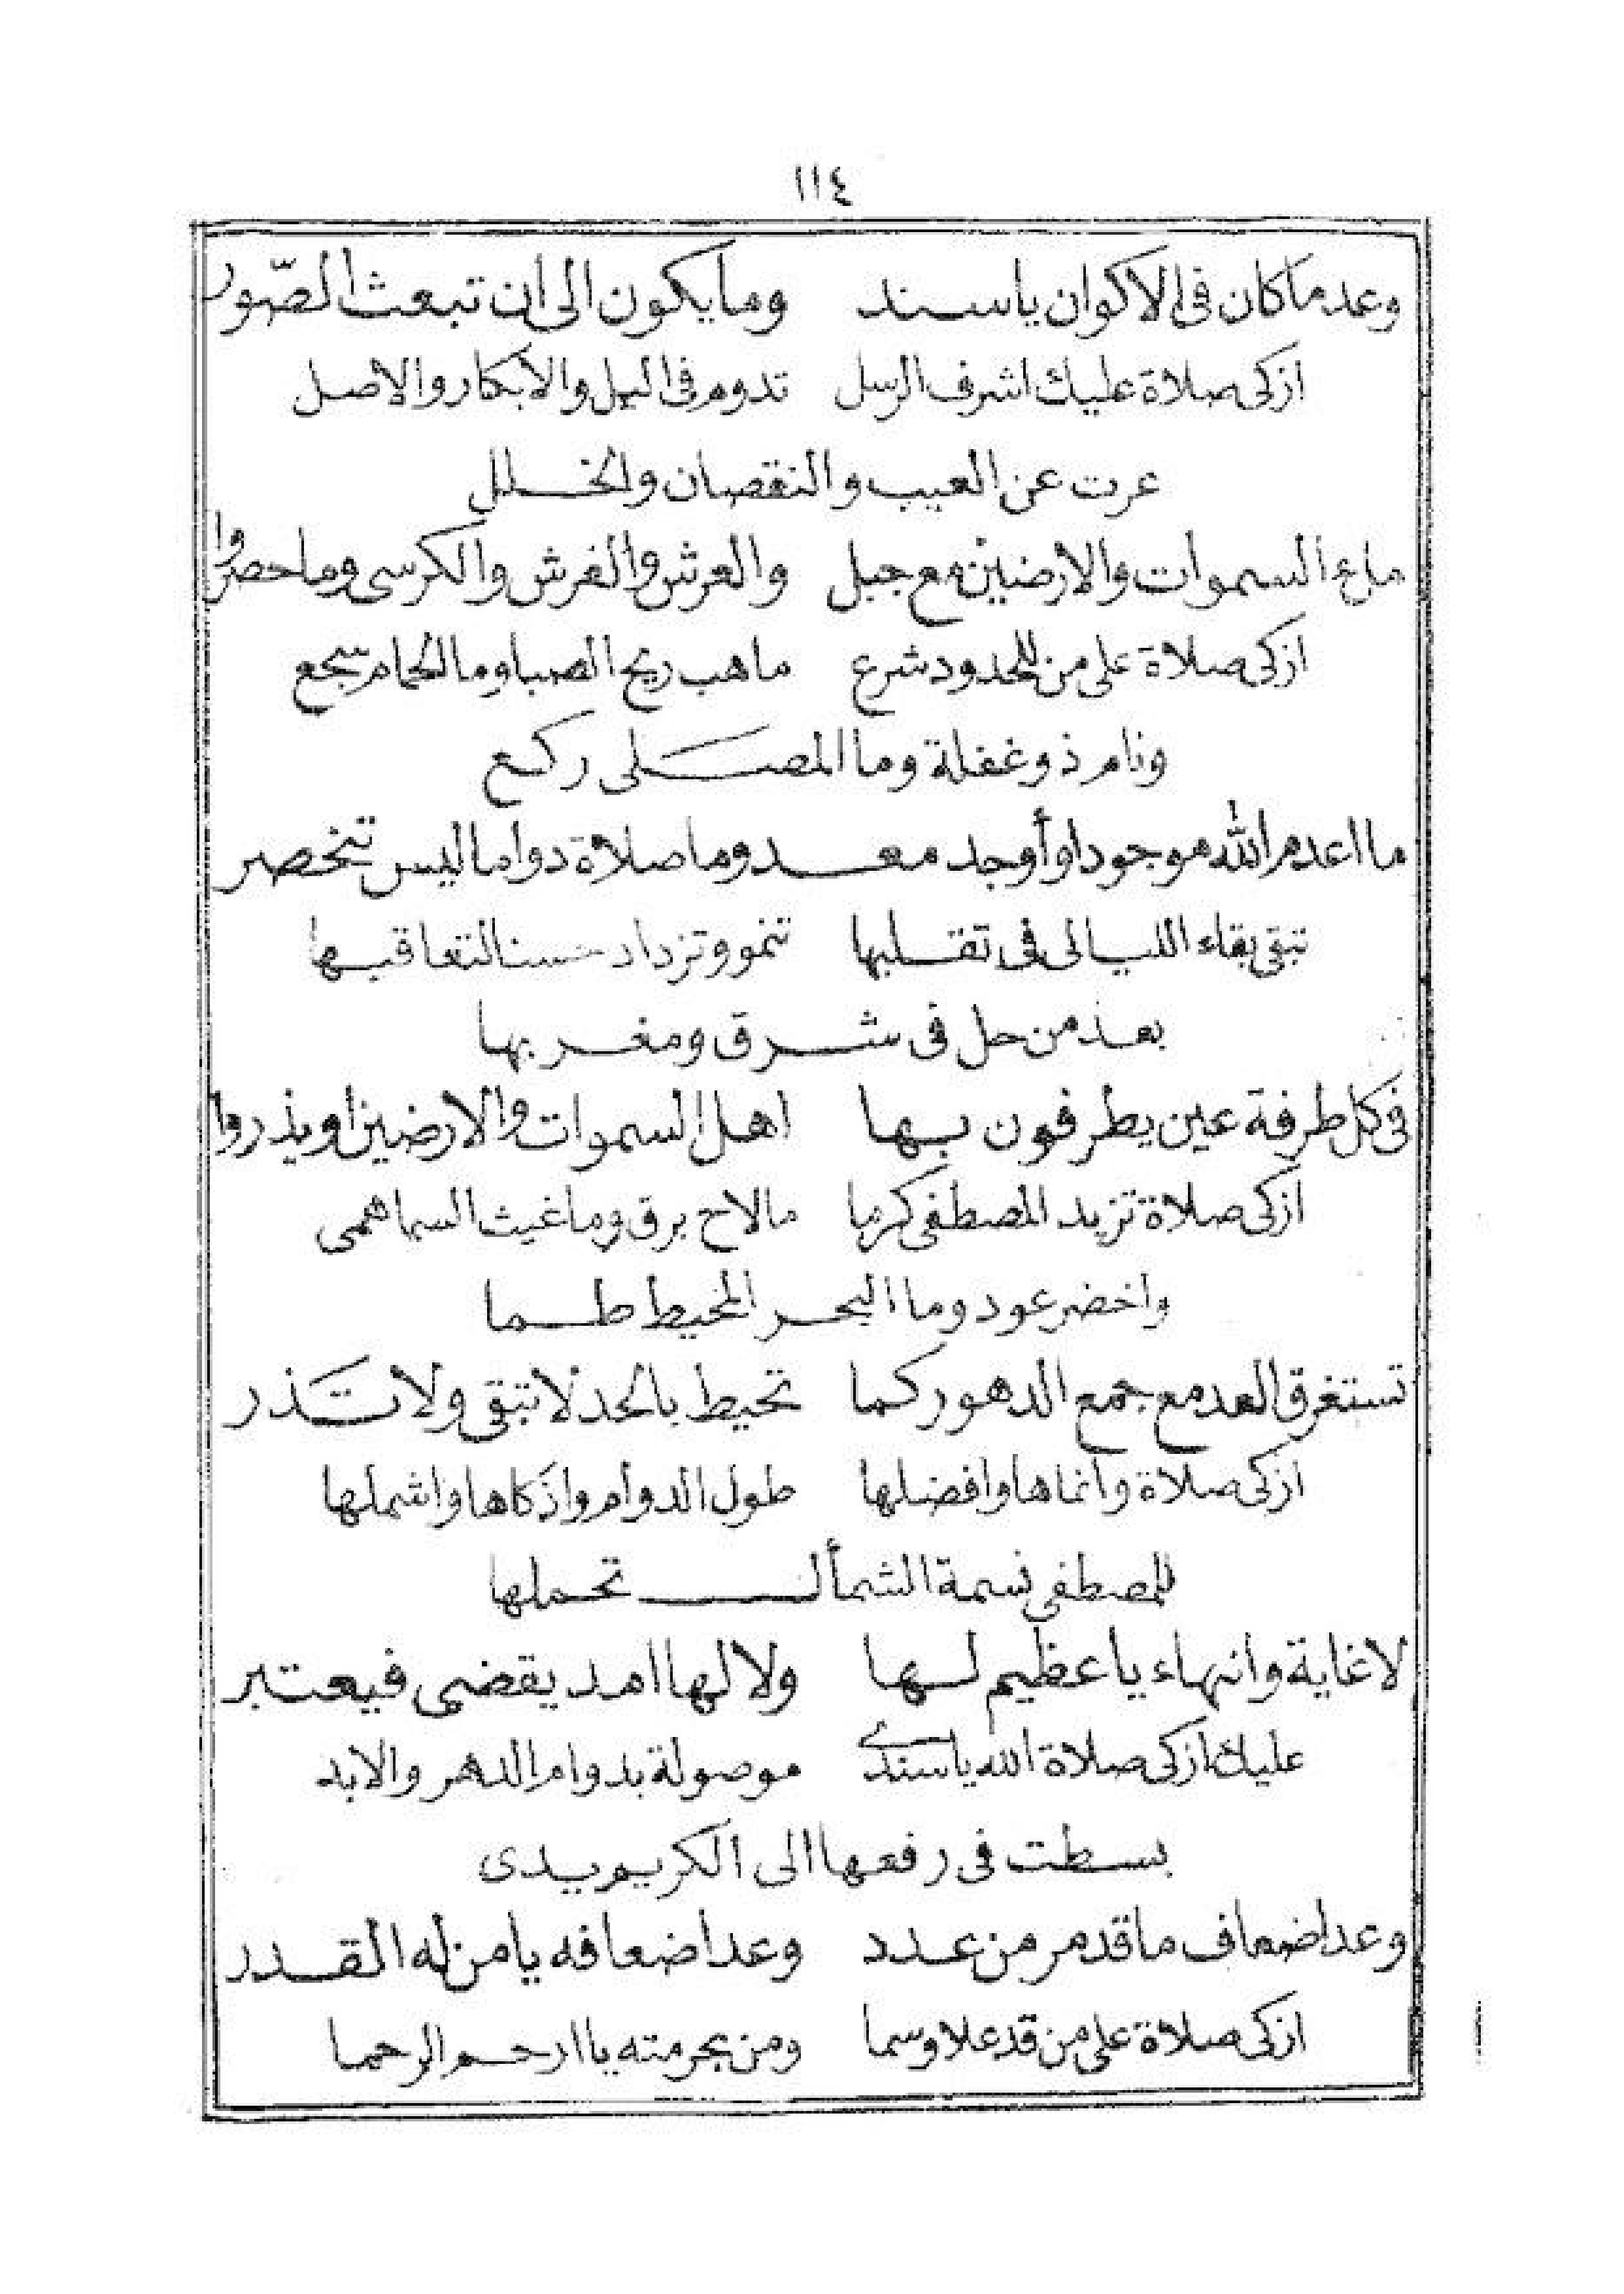 ١١٤
وعد ما كان فى الاكوان ياسند وما يكون الى ان تبعث الصّور
ازكى صلاة عليك اشرف الرسل تدوم فى اليل والابكار والاصل
عرت عن العيب والنقصان والخلل
ملء السموات والارضين مع جبل والعرش والفرش والكرسى وما حصروا
ازكى صلاة على من للحدود شرع ما هب ريح الصبا وما الحمام سجع
ونام ذو غفلة وما المصلى ركع
ما اعدم الله موجودا وأوجد معدوما صلاة دواما ليس تنحصر
تبقى بقاء الليالى فى تقلبها تنمو وتزداد حسنا لتعاقبها
بعد من حل فى شرق ومغربها
فى كل طرفة عين يطرفون بها اهل السموات والارضين او يذروا
ازكى صلاة تزيد المصطفى كرما ما لاح برق وما غيث السما همى
واخضر عود وما البحر المحيط طما
تستغرق العد مع جمع الدهور كما تحيط بالحد لا تبقى ولا تذر
ازكى صلاة وانماها وافضلها طول الدوام واذكاها واشملها
للمصطفى نسمة الشمأل تحملها
لا غاية وانهاء يا عظيم لها ولا لها امد يقضى فيعتبر
عليك ازكى صلاة الله ياسندى موصولة بدوام الدهر والابد
بسطت فى رفعها الى الكريم يدى
وعد اضعاف ما قد مر من عدد وعد اضعافه يا من له القدر
ازكى صلاة على من قد علا وسما ومن بحرمته يا ارحم الرحما